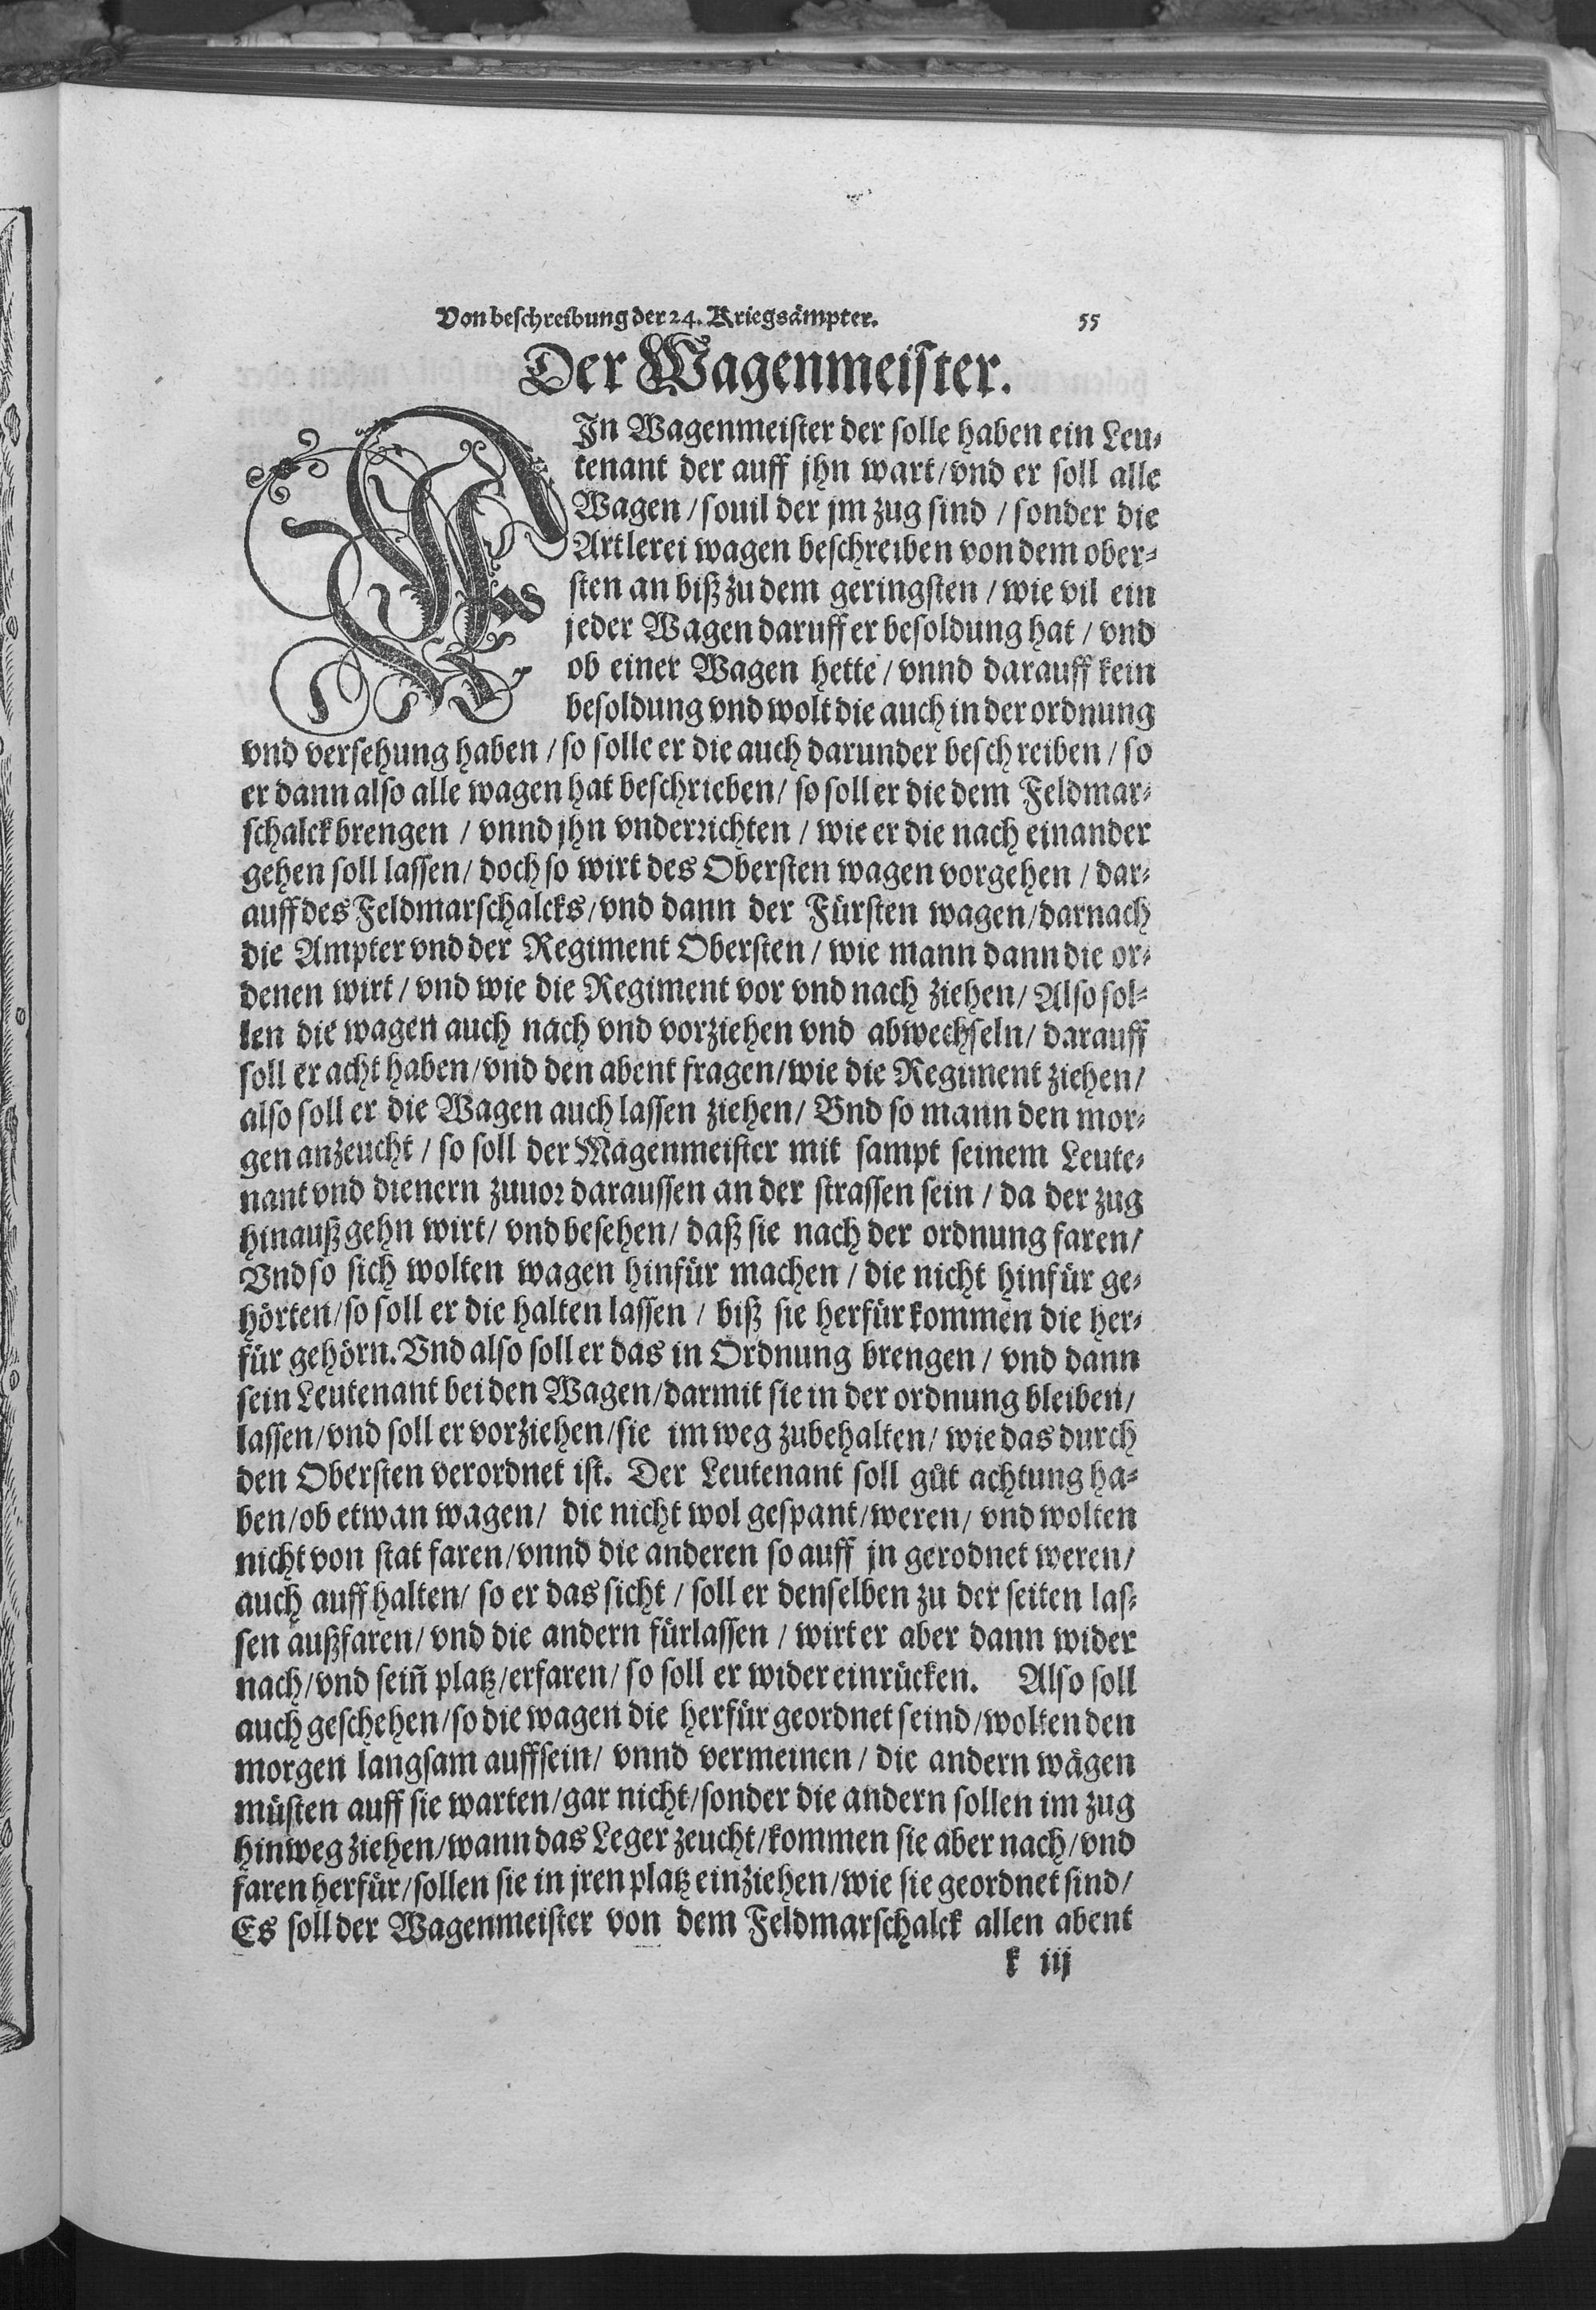 Von beschreibung der 24. Kriegsämpter. 55
Der Wagenmeister.
EIn Wagenmeister der solle haben ein Leu-
tenant der auff jhn wart/vnd er soll alle
Wagen/souil der jm zug sind/sonder die
Artlerei wagen beschreiben von dem ober-
sten an biß zu dem geringsten/wie vil ein
jeder Wagen daruff er besoldung hat/vnd
ob einer Wagen hette/vnnd darauff kein
besoldung vnd wolt die auch in der ordnung
vnd versehung haben/so solle er die auch darunder beschreiben/so
er dann also alle wagen hat beschrieben/so soll er die dem Feldmar-
schalck brengen/vnnd jhn vnderrichten/wie er die nach einander
gehen soll lassen/doch so wirt des Obersten wagen vorgehen/dar-
auff des Feldmarschalcks/vnd dann der Fürsten wagen/darnach
die Ampter vnd der Regiment Obersten/wie mann dann die or-
denen wirt/vnd wie die Regiment vor vnd nach ziehen/Also sol-
len die wagen auch nach vnd vorziehen vnd abwechseln/darauff
soll er acht haben/vnd den abent fragen/wie die Regiment ziehen/
also soll er die Wagen auch lassen ziehen/Vnd so mann den mor-
gen anzeucht/so soll der Magenmeister mit sampt seinem Leute-
nant vnd dienern zuuor daraussen an der strassen sein/da der zug
hinauß gehn wirt/vnd besehen/daß sie nach der ordnung faren/
Vnd so sich wolten wagen hinfür machen/die nicht hinfür ge-
hörten/so soll er die halten lassen/biß sie herfür kommen die her-
für gehörn. Vnd also soll er das in Ordnung brengen/vnd dann
sein Leutenant bei den Wagen/darmit sie in der ordnung bleiben/
lassen/vnd soll er vorziehen/sie im weg zubehalten/wie das durch
den Obersten verordnet ist. Der Leutenant soll gůt achtung ha-
ben/ob etwan wagen/die nicht wol gespant/weren/vnd wolten
nicht von stat faren/vnnd die anderen so auff jn gerodnet weren/
auch auff halten/so er das sicht/soll er denselben zu der seiten las-
sen außfaren/vnd die andern fürlassen/wirt er aber dann wider
nach/vnd sein̄ platz/erfaren/so soll er wider einrücken. Also soll
auch geschehen/so die wagen die herfür geordnet seind/wolten den
morgen langsam auffsein/vnnd vermeinen/die andern wägen
müsten auff sie warten/gar nicht/sonder die andern sollen im zug
hinweg ziehen/wann das Leger zeucht/kommen sie aber nach/vnd
faren herfür/sollen sie in jren platz einziehen/wie sie geordnet sind/
Es soll der Wagenmeister von dem Feldmarschalck allen abent
k iij